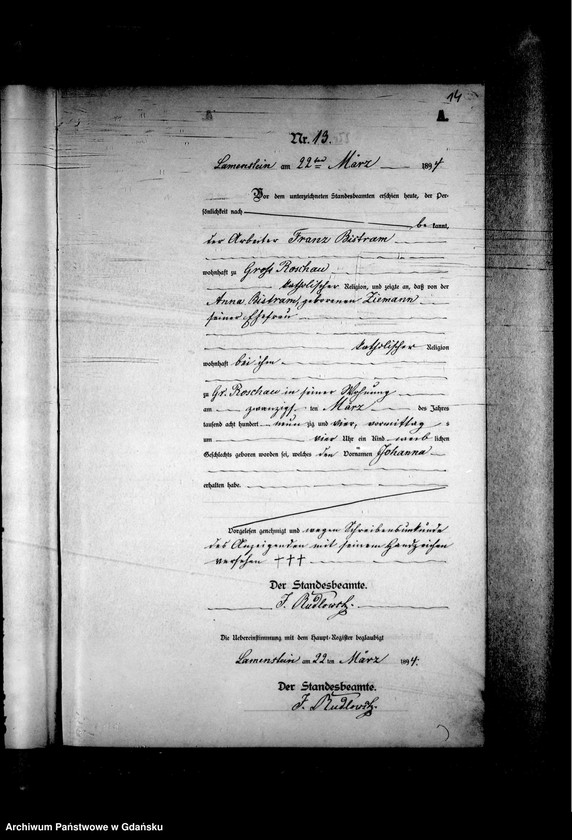 14
A.
Nr. 13.
Lamenstein am 22ten März 1894
Vor dem unterzeichneten Standesbeamten erschien heute, der Per-
sönlichkeit nach
be kannt,
der Arbeiter Franz Bistram
wohnhaft zu Groß Roschau
katholischer Religion, und zeigte an, daß von der
Anna Bistram, geborenen Ziemann
seiner Ehefrau
katholischer Religion
wohnhaft bei ihm
zu Gr. Roschau in seiner Wohnung
am zwanzigs ten März des Jahres
tausend acht hundert neun zig und vier, vormittag s
um vier Uhr ein Kind weib lichen
Geschlechts geboren worden sei, welches den Vornamen Johanna
erhalten habe.
Vorgelesen genehmigt und wegen Schreibensunkunde
des Anzeigenden mit seinem Handzeichen
versehen +++
Der Standesbeamte.
Die Uebereinstimmung mit dem Haupt-Register beglaubigt
Lamenstein am 22 ten März 1894.
Der Standesbeamte.
Archiwum Państwowe w Gdańsku